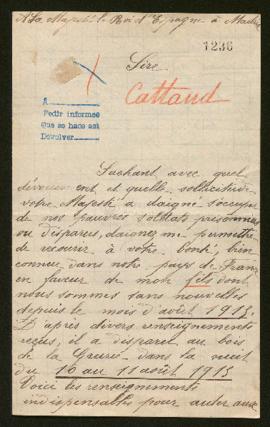 A Sa Majesté le Roi d'Espagne à Madrid
1236
Sire
Cattaud
A
Pedir informes
que se hace así
Devolver
Sachant avec quel
dévouement et quelle sollicitude
votre Majesté a daigné s'occuper
de nos pauvres soldats prisonniers
ou disparus, daignez me permettre
de recourir à votre bonté, bien
connue dans notre pays de France
en faveur de mon fils dont
nous sommes sans nouvelles
depuis le mois d'août 1915.
D'après divers renseignements
reçus, il a disparu au bois
de la Grurie dans la nuit
du 10 au 11 août 1915
Voici les renseignements
indispensables pour aider aux